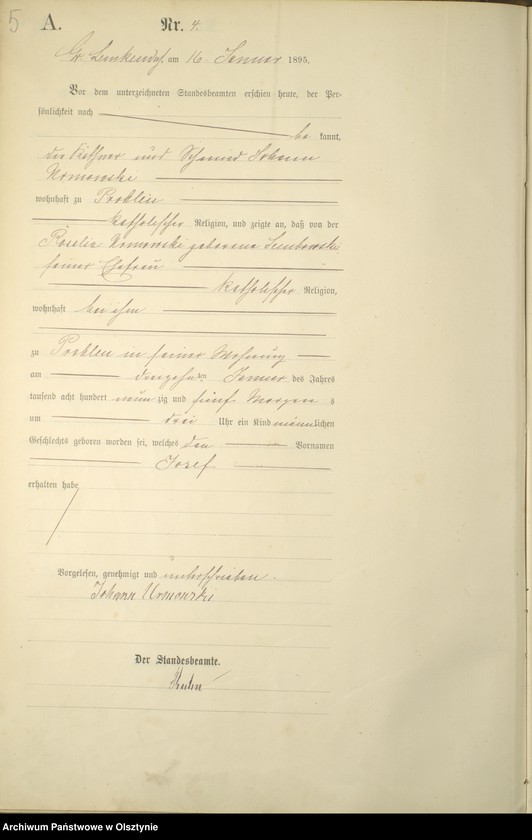 5 A. Nr. 4.
Gr. Lemkendorf, am 16. Januar 1895.
Vor dem unterzeichneten Standesbeamten erschien heute, der Per-
sönlichkeit nach
be kannt,
der Käthner und Schmied Johann
Urmowski
wohnhaft zu Prohlen
katholischer Religion, und zeigte an, daß von der
Rosalia Urmowski geborene
seiner Ehefrau
katholischer Religion,
wohnhaft bei ihm
zu Prohlen in seiner Wohnung
am ten Januar des Jahres
tausend acht hundert neun zig und fünf Morgen s
um drei Uhr ein Kind männlichen
Geschlechts geboren worden sei, welches den Vornamen
Josef
erhalten habe
Vorgelesen, genehmigt und unterschrieben.
Johann Urmowski
Der Standesbeamte.
Archiwum Państwowe w Olsztynie